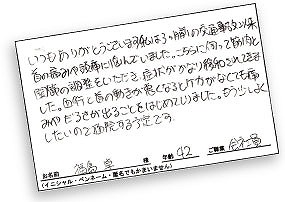 いつもありがとうございます。私は3ヶ月前の交通事故以来
首の痛みや頭痛に悩んでいました。こちらに伺って筋肉と
骨格の調整をいただき、症状がかなり緩和されてきま
した。血行と首の動きが悪くなるとケガがなくても痛
みやだるさが出ることをはじめてしりました。もう少しよく
したいので通院する予定です。
お名前 様 年齢 42 ご職業 会社員
(イニシャル・ペンネーム・匿名でもかまいません)